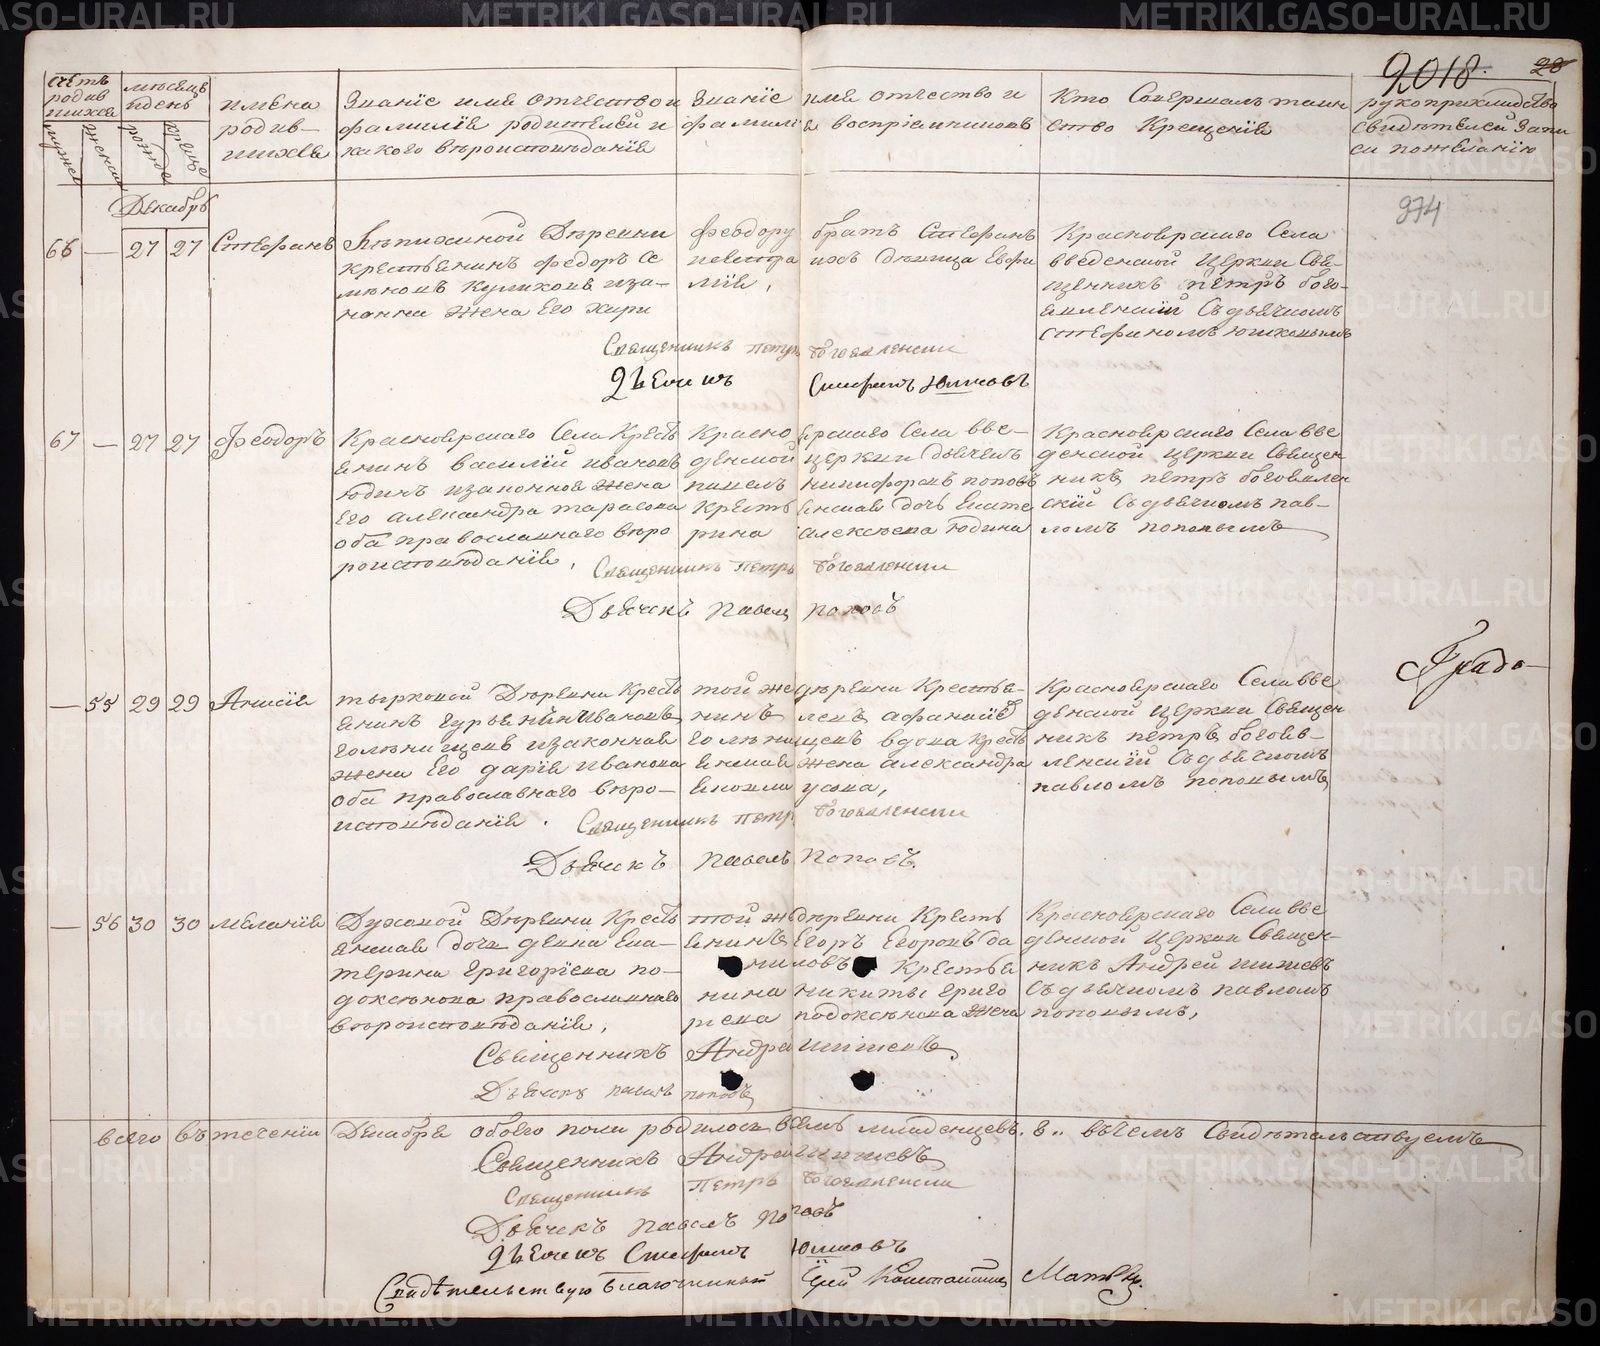 2018. 28
счетъ родив шихся
мужеска
женска
месецъ и день
рожде
креще
имена родив- шихся
Званіе имя отчество и фамилія родителей и какого вѣроисповѣданія
Званіе имя отчество и фамилія воспріемниковъ
Кто Совершалъ таин ство Крещенія
рукоприкладство свидѣтелей запи си пожеланію
Декабрь
974
66 — 27 27 Стефанъ
деревни
крестьянинъ Федоръ Се
меновъ Куликовъ иза-
конна жена Его Хари
Феодору братъ Стефанъ
ихъ девица Евфи
мія,
Красноярскаго Села
введенской Церкви Свя-
щенникъ петръ Бого-
явленскій Съ дьячкомъ
стефаномъ
Священникъ петръ Богоявленскій
Дьячекъ Стефанъ
67 — 27 27 Феодоръ
Красноярскаго Села Кресть
янинъ василій ивановъ
Юдинъ изаконная жена
Его александра тарасова
оба православнаго веро
исповѣданія,
Красноярскаго Села вве-
денской церкви дьячекъ
павелъ никифоровъ поповъ
Крестьянская дочь Екате
рина алексеева Юдина
Красноярскаго Села вве
денской церкви Священ
никъ петръ Богоявлен
скій Съ дьячкомъ пав-
ломъ поповымъ
Священникъ Петръ Богоявленскій
Дьячекъ Павелъ поповъ
Градо-
— 55 29 29 Анисія
тырковой Деревни Кресть
янинъ Гурьянъ Ивановъ
Голенищевъ изаконная
жена Его дарія Иванова
оба православнаго веро-
исповѣданія.
той же деревни Крестья-
нинъ афанасій
Голенищевъ вдова Кресть
янская жена александра
Красноярскаго Села вве
денской Церкви Священ
никъ петръ Богояв-
ленскій Съ дьячкомъ
павломъ поповымъ
Священникъ петръ Богоявленскій
Дьячекъ павелъ Поповъ
— 56 30 30 Меланія
Духовой Деревни Кресть
янская дочь девка Ека-
терина григорієва по-
доксенова православнаго
вероисповеданія,
той же деревни Кресть
янинъ Егоръ Егоровъ да
ниловъ Крестья
нина никиты григо
рьева подоксенова жена
Красноярскаго Села вве
денской Церкви Священ-
никъ Андрей шишевъ
Съ дьячкомъ павломъ
поповымъ,
Священникъ Андрей шишевъ
Дьячекъ павелъ поповъ
всего въ течении Декабря обоего пола родилось всемъ младенцевъ. 8.. въ чемъ Свидетельствуемъ
Священникъ Андрей шишевъ
Священникъ Петръ Богоявленскій
Дьячекъ Павелъ Поповъ
Дьячекъ Стефанъ
Свидѣтельствую Благочинный Іерей Константинъ